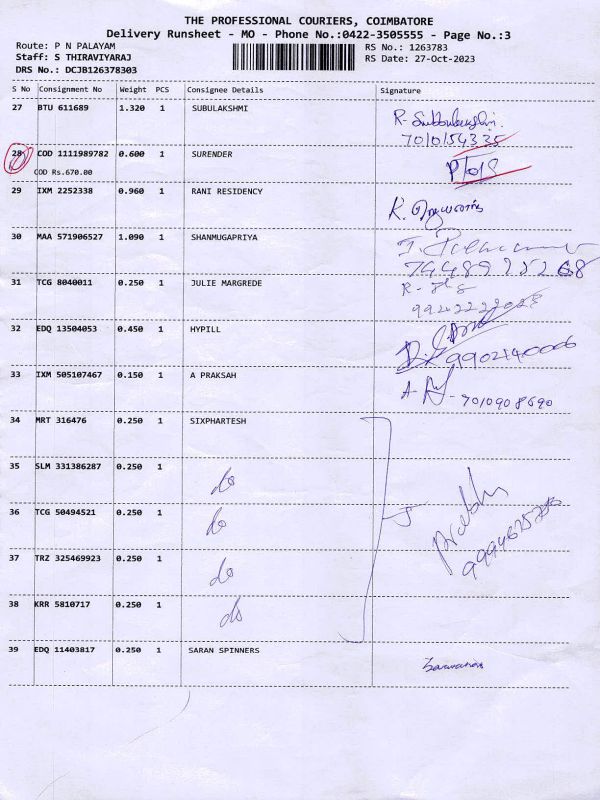 THE PROFESSIONAL COURIERS, COIMBATORE
Delivery Runsheet - MO - Phone No.:0422-3505555 - Page No.:3
Route: P N PALAYAM RS No.: 1263783
Staff: S THIRAVIYARAJ RS Date: 27-Oct-2023
DRS No.: DCJB126378303
S No Consignment No Weight PCS Consignee Details Signature
27 BTU 611689 1.320 1 SUBULAKSHMI
R. Subbulakshmi
7010154335
28 COD 1111989782 0.600 1 SURENDER
COD Rs.670.00
29 IXM 2252338 0.960 1 RANI RESIDENCY
30 MAA 571906527 1.090 1 SHANMUGAPRIYA
31 TCG 8040011 0.250 1 JULIE MARGREDE
32 EDQ 13504053 0.450 1 HYPILL
9902140006
33 IXM 505107467 0.150 1 A PRAKSAH
7010908690
34 MRT 316476 0.250 1 SIXPHARTESH
35 SLM 331386287 0.250 1 do
36 TCG 50494521 0.250 1 do
37 TRZ 325469923 0.250 1 do
38 KRR 5810717 0.250 1 do
Prabhu
39 EDQ 11403817 0.250 1 SARAN SPINNERS